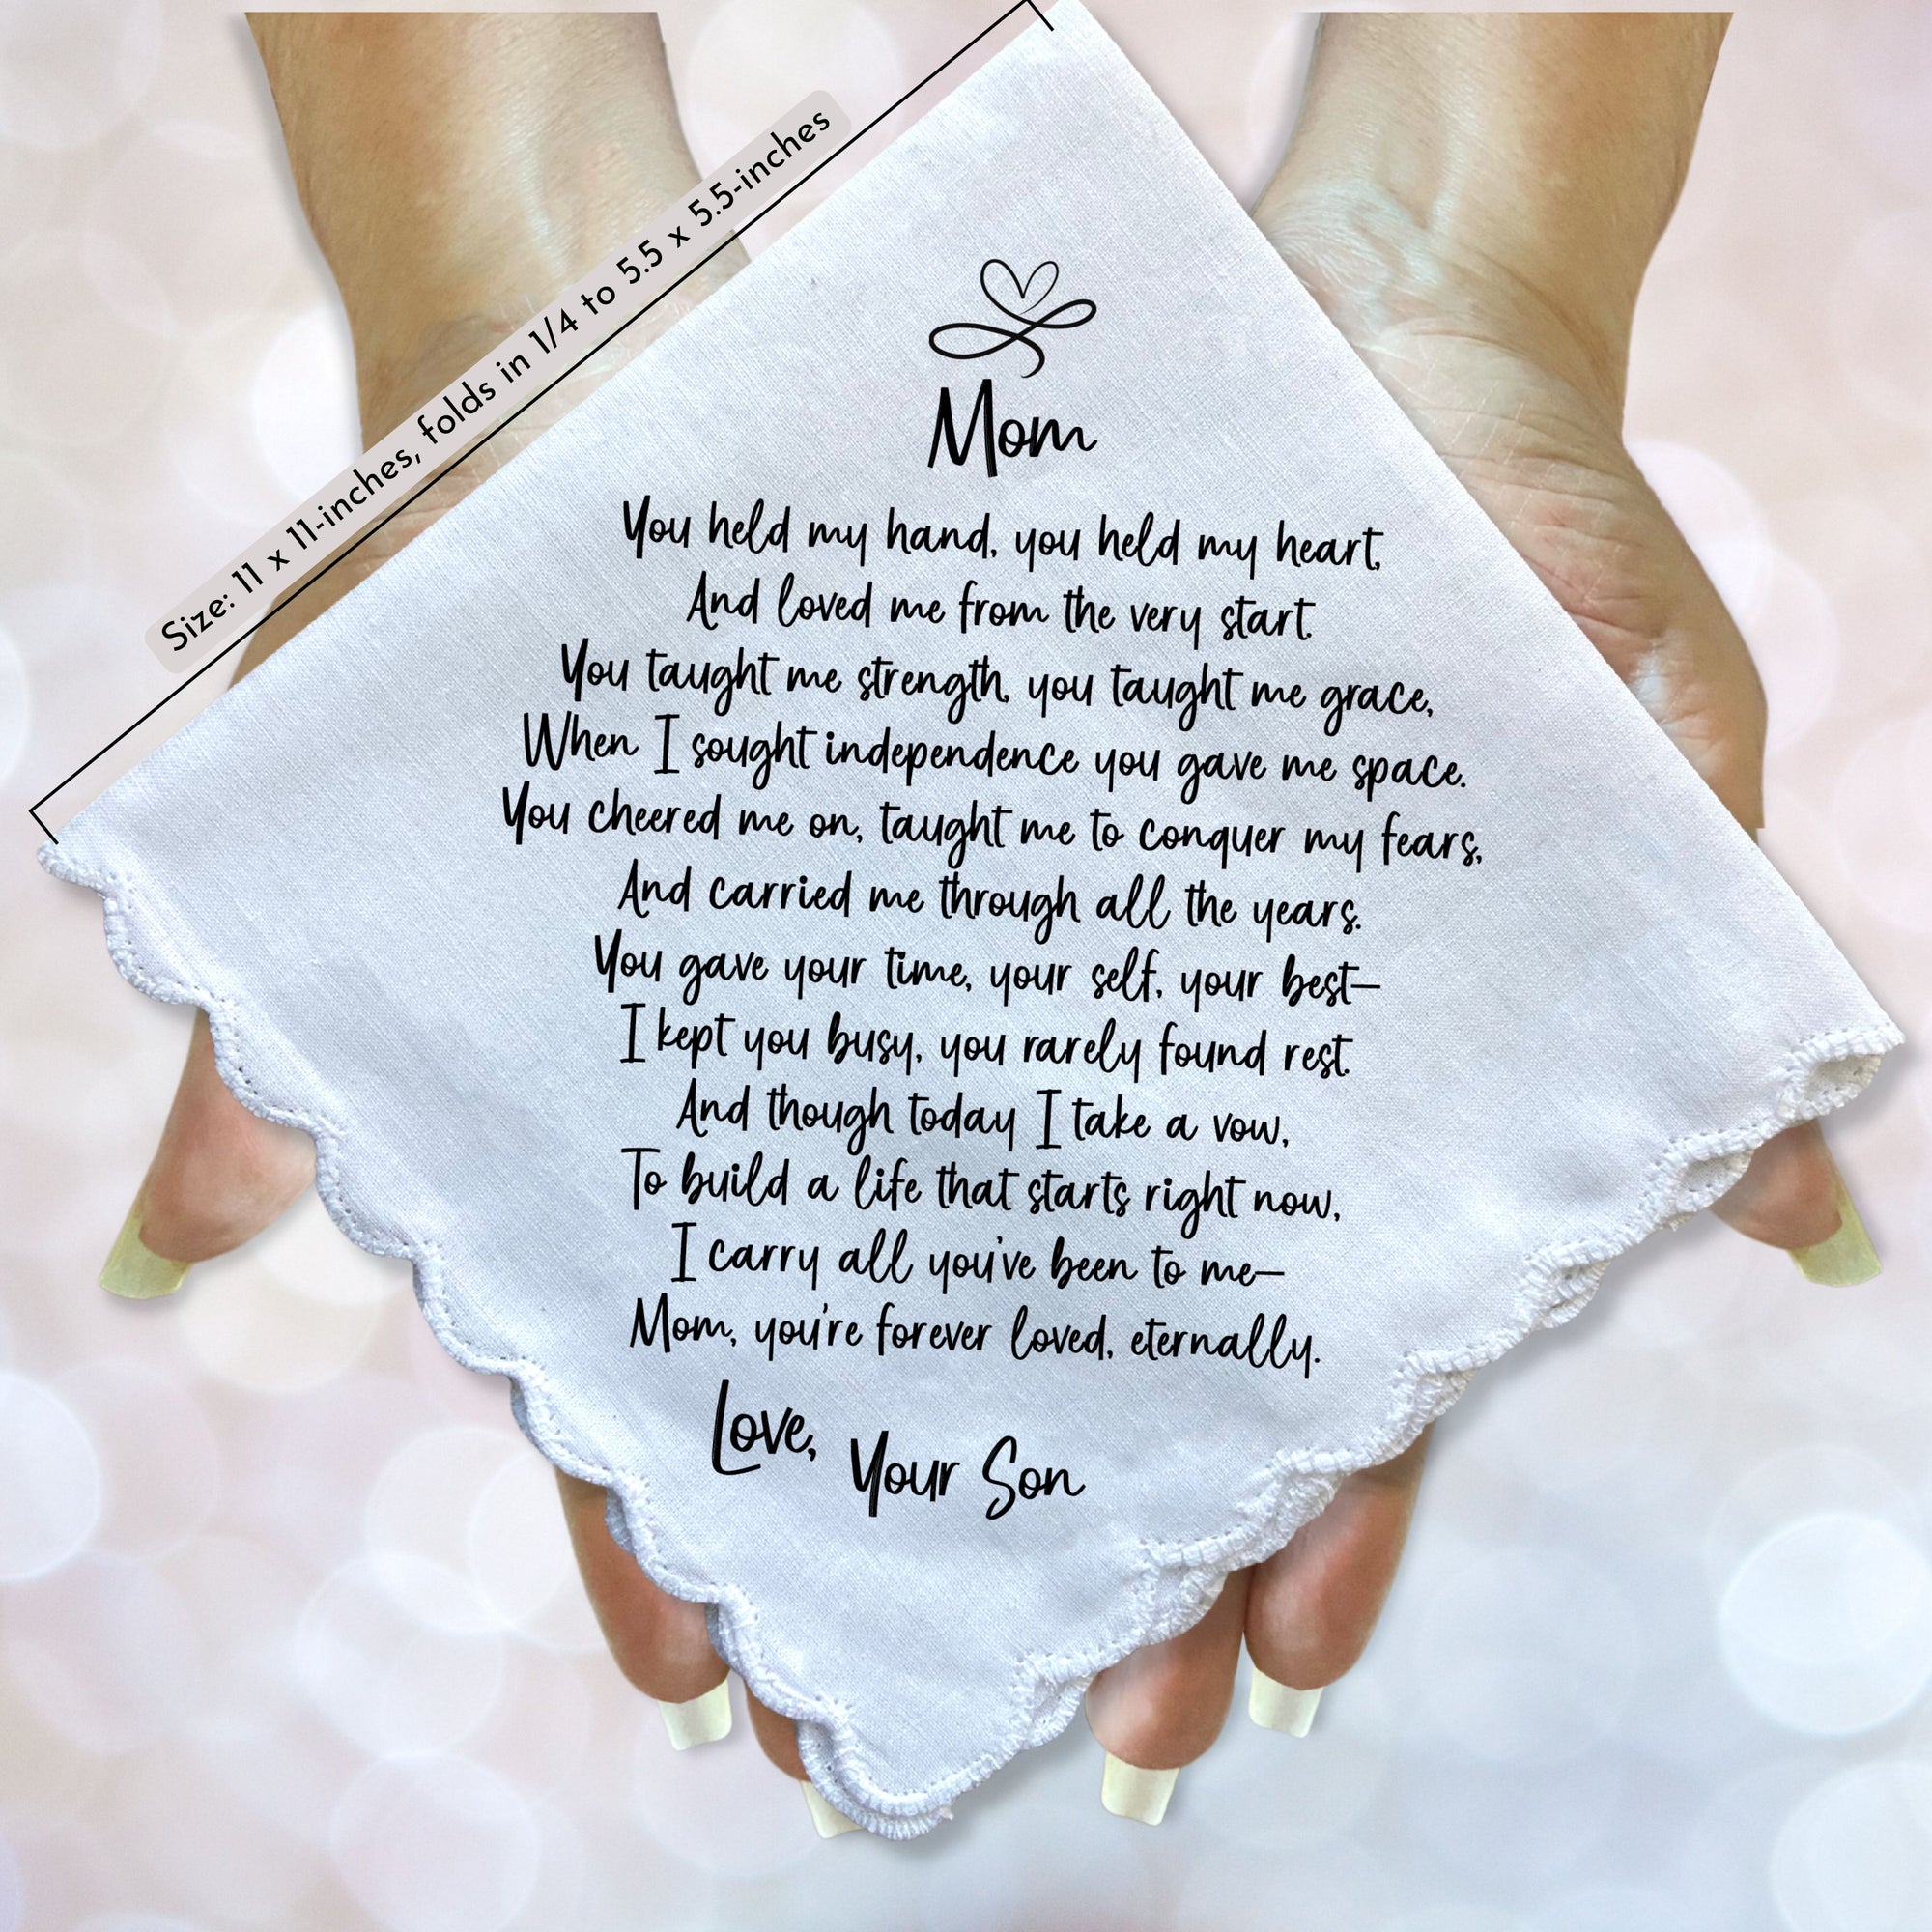 Size: 11 x 11-inches, folds in 1/4 to 5.5 x 5.5-inches
Mom
You held my hand, you held my heart,
And loved me from the very start.
You taught me strength, you taught me grace,
When I sought independence you gave me space.
You cheered me on, taught me to conquer my fears,
And carried me through all the years.
You gave your time, your self, your best—
I kept you busy, you rarely found rest.
And though today I take a vow,
To build a life that starts right now,
I carry all you've been to me—
Mom, you're forever loved, eternally.
Love, Your Son